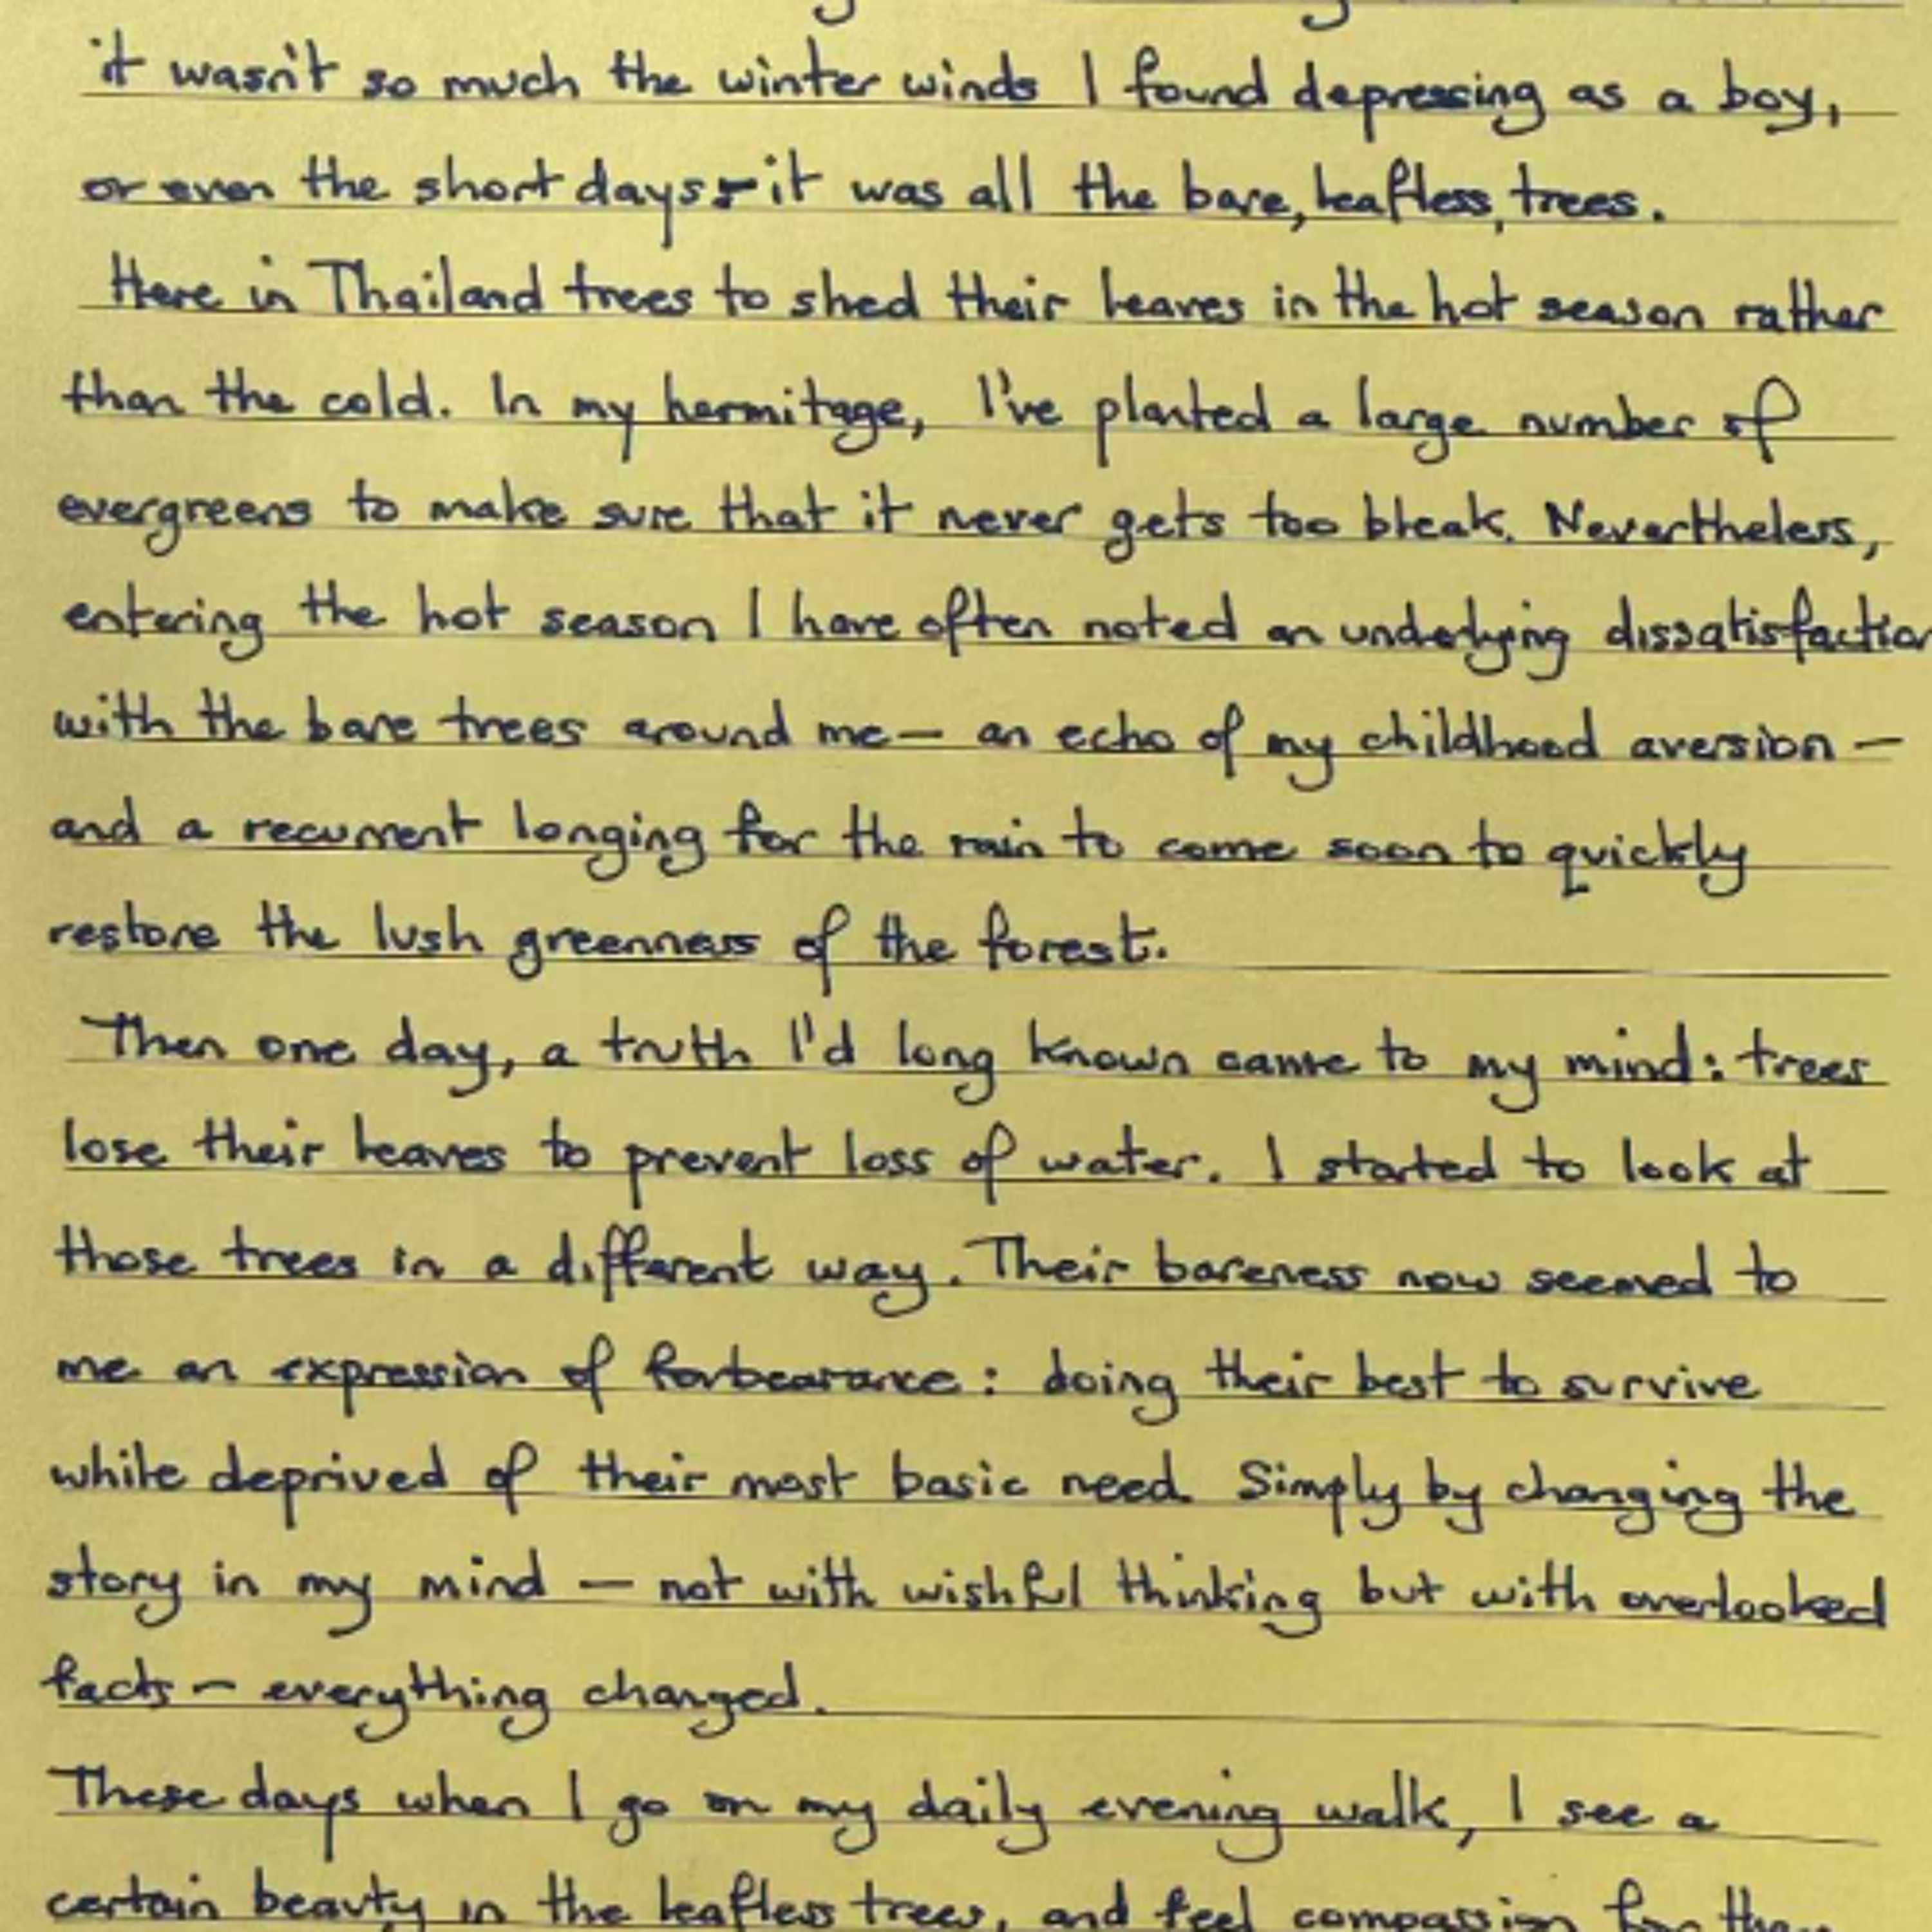 it wasn't so much the winter winds I found depressing as a boy,
or even the short days - it was all the bare, leafless, trees.
Here in Thailand trees to shed their leaves in the hot season rather
than the cold. In my hermitage, I've planted a large number of
evergreens to make sure that it never gets too bleak. Nevertheless,
entering the hot season I have often noted an underlying dissatisfaction
with the bare trees around me — an echo of my childhood aversion —
and a recurrent longing for the rain to come soon to quickly
restore the lush greenness of the forest.
Then one day, a truth I'd long known came to my mind: trees
lose their leaves to prevent loss of water. I started to look at
those trees in a different way. Their bareness now seemed to
me an expression of forbearance: doing their best to survive
while deprived of their most basic need. Simply by changing the
story in my mind — not with wishful thinking but with overlooked
facts — everything changed.
These days when I go on my daily evening walk, I see a
certain beauty in the leafless trees, and feel compassion for them